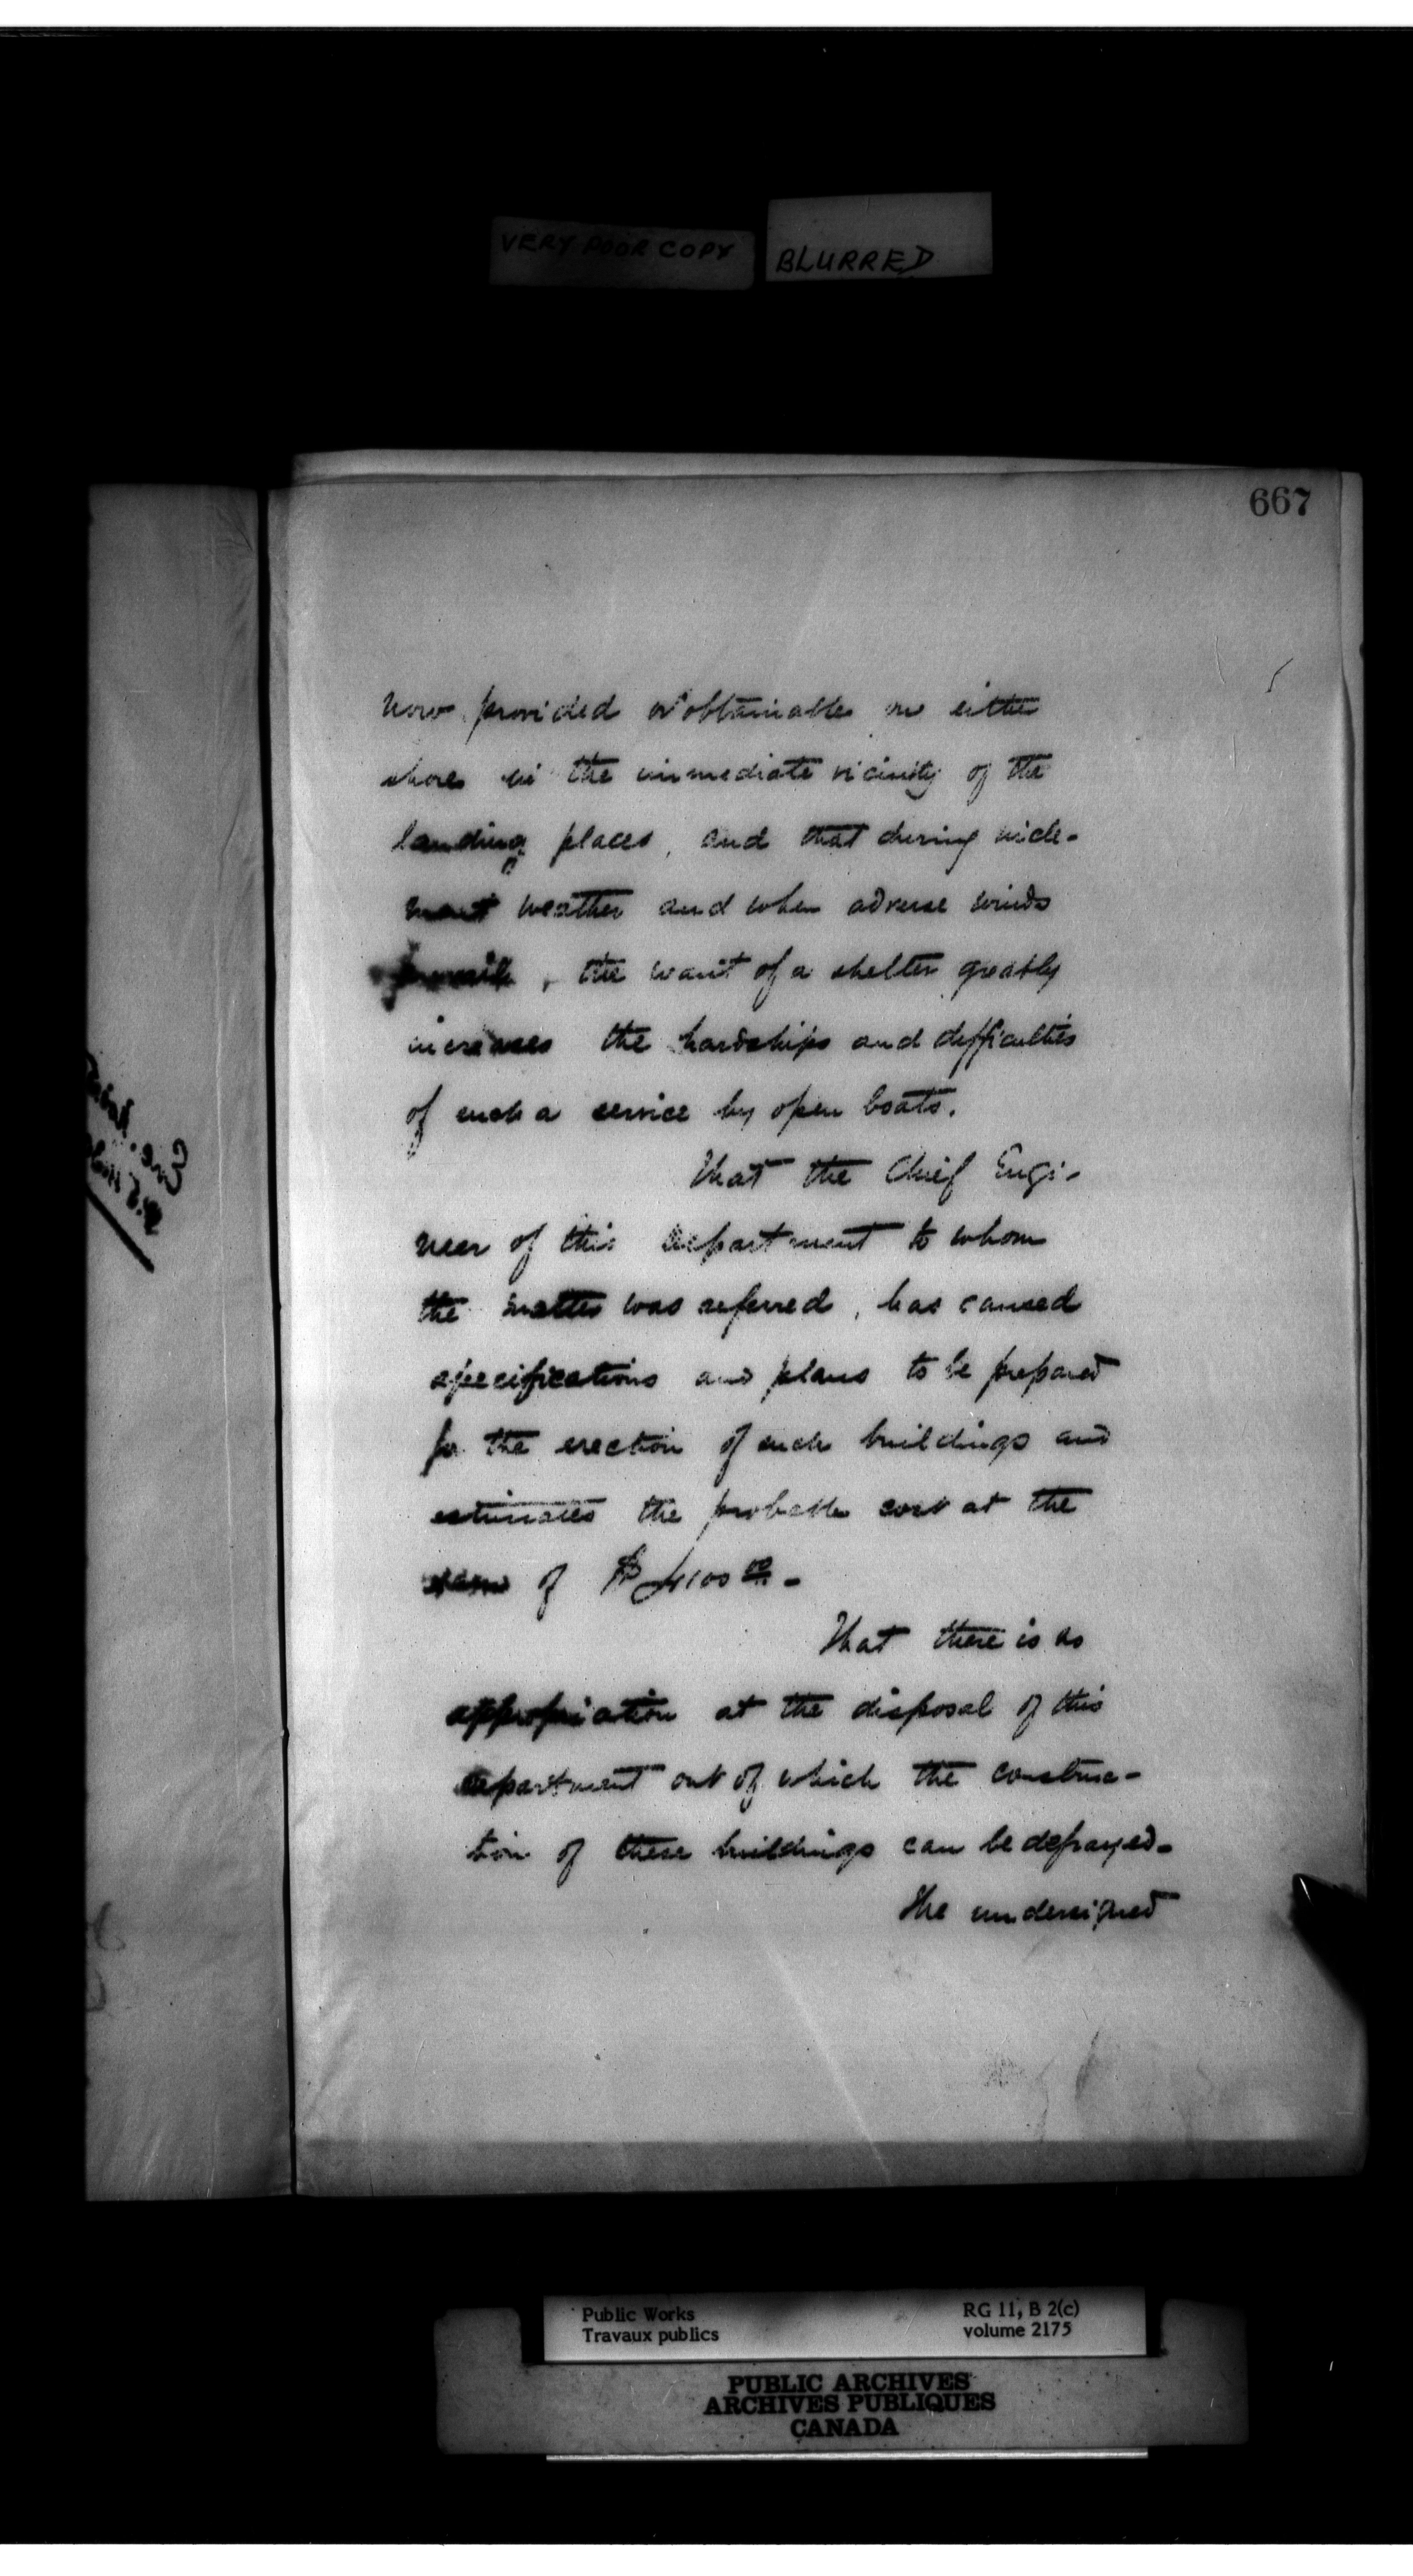 VERY POOR COPY
BLURRED
667
now provided or obtainable on either
shore in the immediate vicinity of the
landing places, and that during incle-
ment weather and when adverse winds
prevail, the want of a shelter greatly
increases the hardships and difficulties
of such a service by open boats.
That the Chief Engi-
neer of this department to whom
the matter was referred, has caused
specifications and plans to be prepared
for the erection of such buildings and
estimates the probable cost at the
sum of
That there is no
appropriation at the disposal of this
department out of which the construc-
tion of these buildings can be defrayed-
The undersigned
Public Works
Travaux publics
RG 11, B 2(c)
volume 2175
PUBLIC ARCHIVES
ARCHIVES PUBLIQUES
CANADA